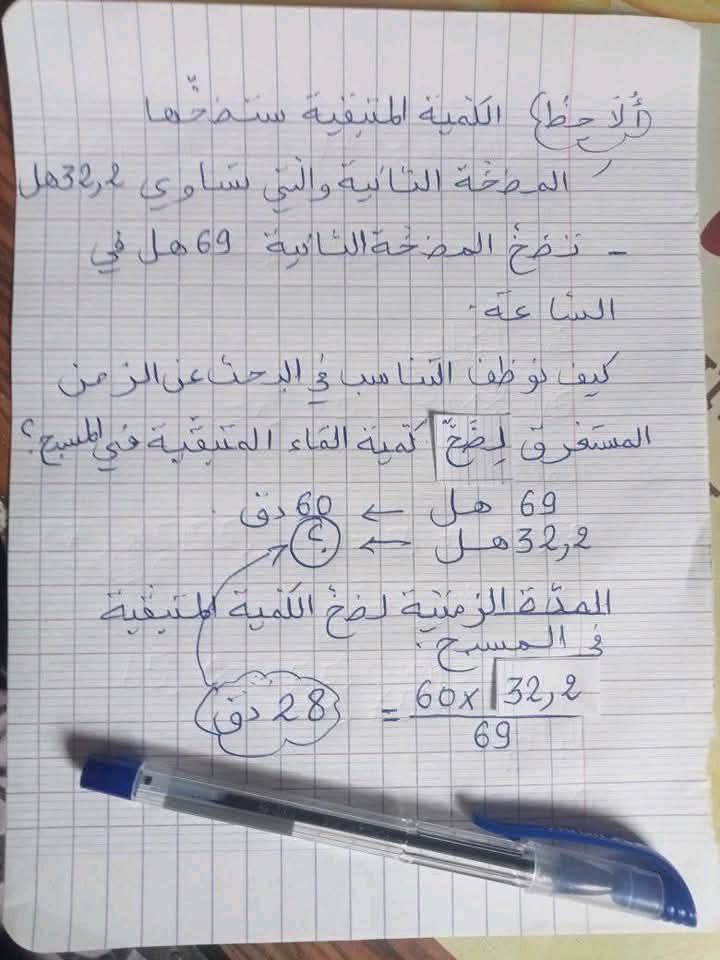 (أُلَاحِظ) الكمية المتبقية ستضخّها
المضخة الثانية والتي تساوي 32,2هل
- تضخ المضخة الثانية 69 هل في
الساعة.
كيف نوظف التناسب في البحث عن الزمن
المستغرق لِضَخّ كمية الماء المتبقية في المسبح؟
69 هل ← 60 دق
32,2 هل ← ؟
المدّة الزمنية لضخ الكمية المتبقية
في المسبح:
60x 32,2 / 69 = 28 دق